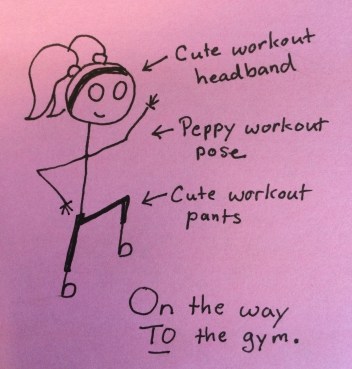 Cute workout
headband
Peppy workout
pose
Cute workout
pants
On the way
TO the gym.